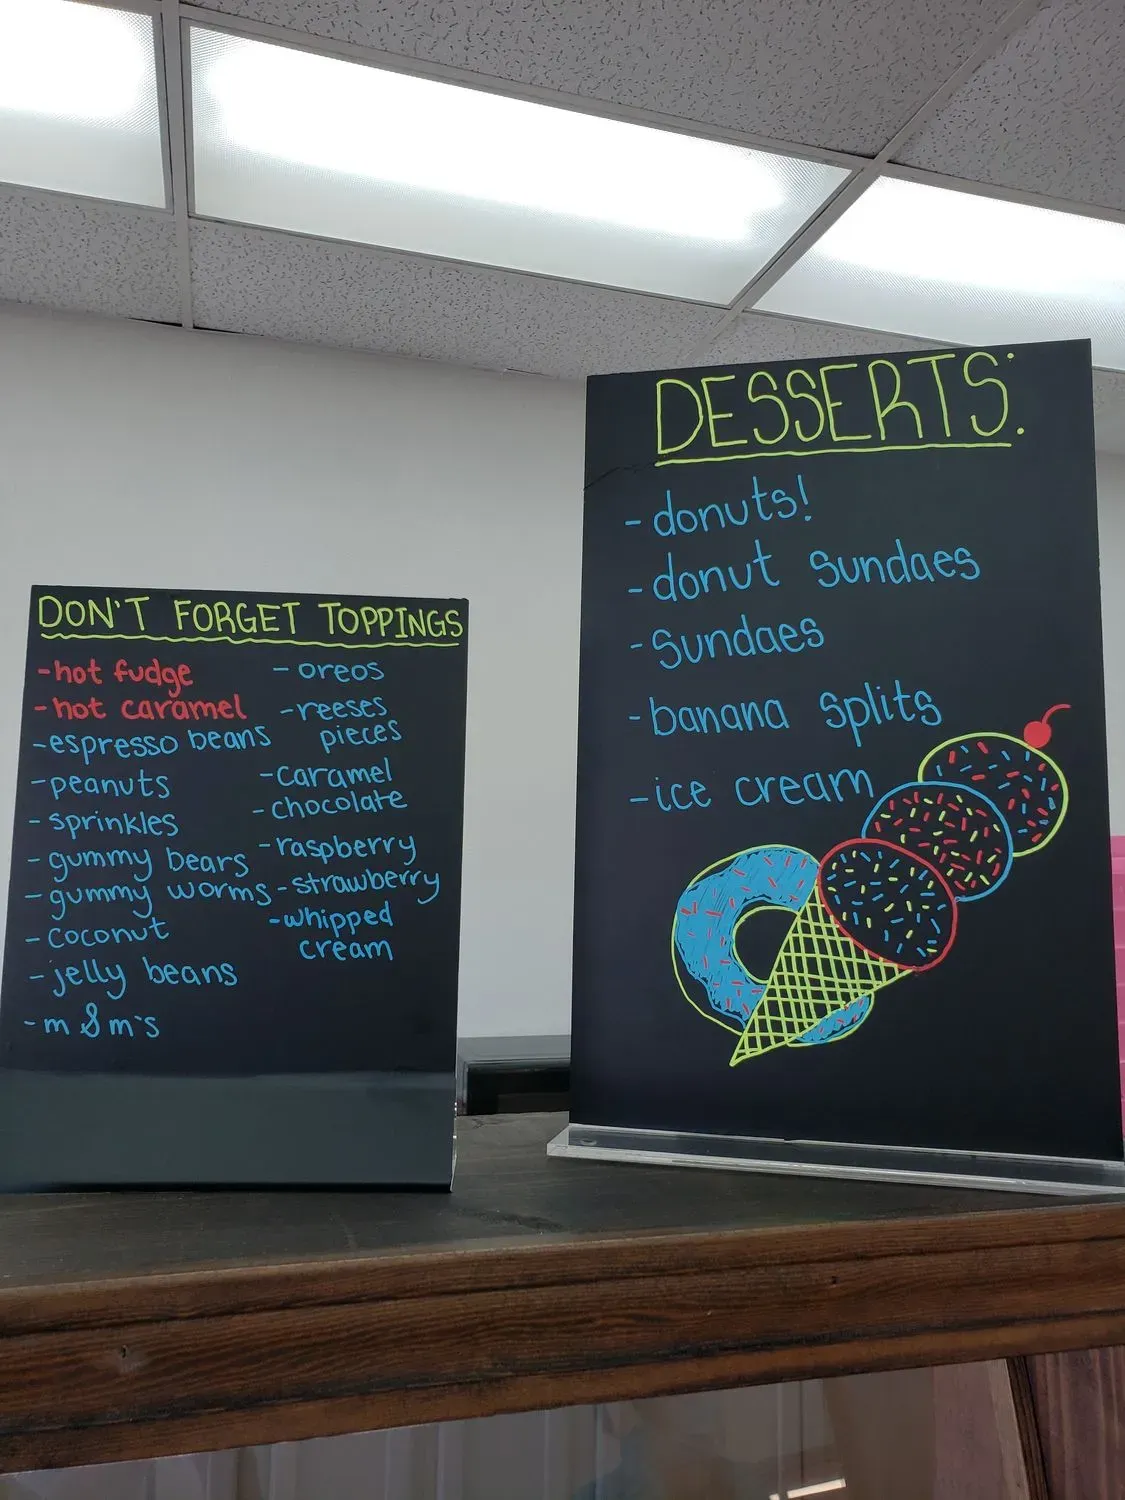 DON'T FORGET TOPPINGS
-hot fudge
-hot caramel
-espresso beans
-peanuts
-sprinkles
-gummy bears
-gummy worms
-coconut
-jelly beans
-m & m's
-oreos
-reeses
pieces
-caramel
-chocolate
-raspberry
-strawberry
-whipped
cream
DESSERTS:
-donuts!
-donut sundaes
-sundaes
-banana splits
-ice cream